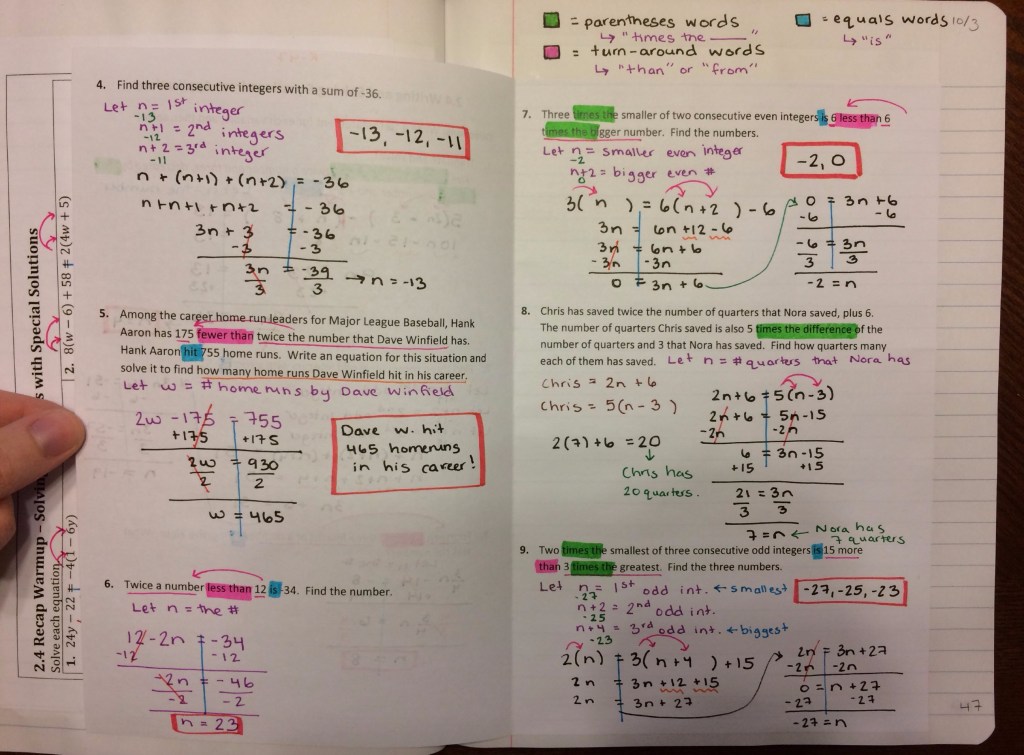 2.4 Recap Warmup – Solvin
s with Special Solutions
Solve each equation
1. 24y − 22 = −4(1 − 6y)
2. 8(w − 6) + 58 = 2(4w + 5)
4. Find three consecutive integers with a sum of -36.
Let n = 1st integer
-13
n+1 = 2nd integers
-12
n+2 = 3rd integer
-11
-13, -12, -11
n + (n+1) + (n+2) = -36
n+n+1+n+2 = -36
3n + 3 = -36
-3 -3
3n = -39
3 3
→ n = -13
5. Among the career home run leaders for Major League Baseball, Hank
Aaron has 175 fewer than twice the number that Dave Winfield has.
Hank Aaron hit 755 home runs. Write an equation for this situation and
solve it to find how many home runs Dave Winfield hit in his career.
Let w = # homeruns by Dave Winfield
2w - 175 = 755
+175 +175
2w = 930
2 2
w = 465
Dave w. hit
465 homeruns
in his career!
6. Twice a number less than 12 is -34. Find the number.
Let n = the #
12 - 2n = -34
-12 -12
-2n = -46
-2 -2
n = 23
= parentheses words
↳ "times the ____"
= turn-around words
↳ "than" or "from"
= equals words 10/3
↳ "is"
7. Three times the smaller of two consecutive even integers is 6 less than 6
times the bigger number. Find the numbers.
Let n = smaller even integer
-2
n+2 = bigger even #
0
-2, 0
3( n ) = 6(n+2) - 6
3n = 6n + 12 - 6
3n = 6n + 6
-3n -3n
0 = 3n + 6
0 = 3n + 6
-6 -6
-6 = 3n
3 3
-2 = n
8. Chris has saved twice the number of quarters that Nora saved, plus 6.
The number of quarters Chris saved is also 5 times the difference of the
number of quarters and 3 that Nora has saved. Find how many quarters
each of them has saved. Let n = # quarters that Nora has
Chris = 2n + 6
Chris = 5(n - 3)
2(7) + 6 = 20
↓
Chris has
20 quarters.
2n+6 = 5(n-3)
2n+6 = 5n-15
-2n -2n
6 = 3n-15
+15 +15
21 = 3n
3 3
7 = n ← Nora has
7 quarters
9. Two times the smallest of three consecutive odd integers is 15 more
than 3 times the greatest. Find the three numbers.
Let n = 1st odd int. ← smallest
-27
n+2 = 2nd odd int.
-25
n+4 = 3rd odd int. ← biggest
-23
-27, -25, -23
2(n) = 3(n+4) + 15
2n = 3n + 12 + 15
2n = 3n + 27
2n = 3n + 27
-2n -2n
0 = n + 27
-27 -27
-27 = n
47